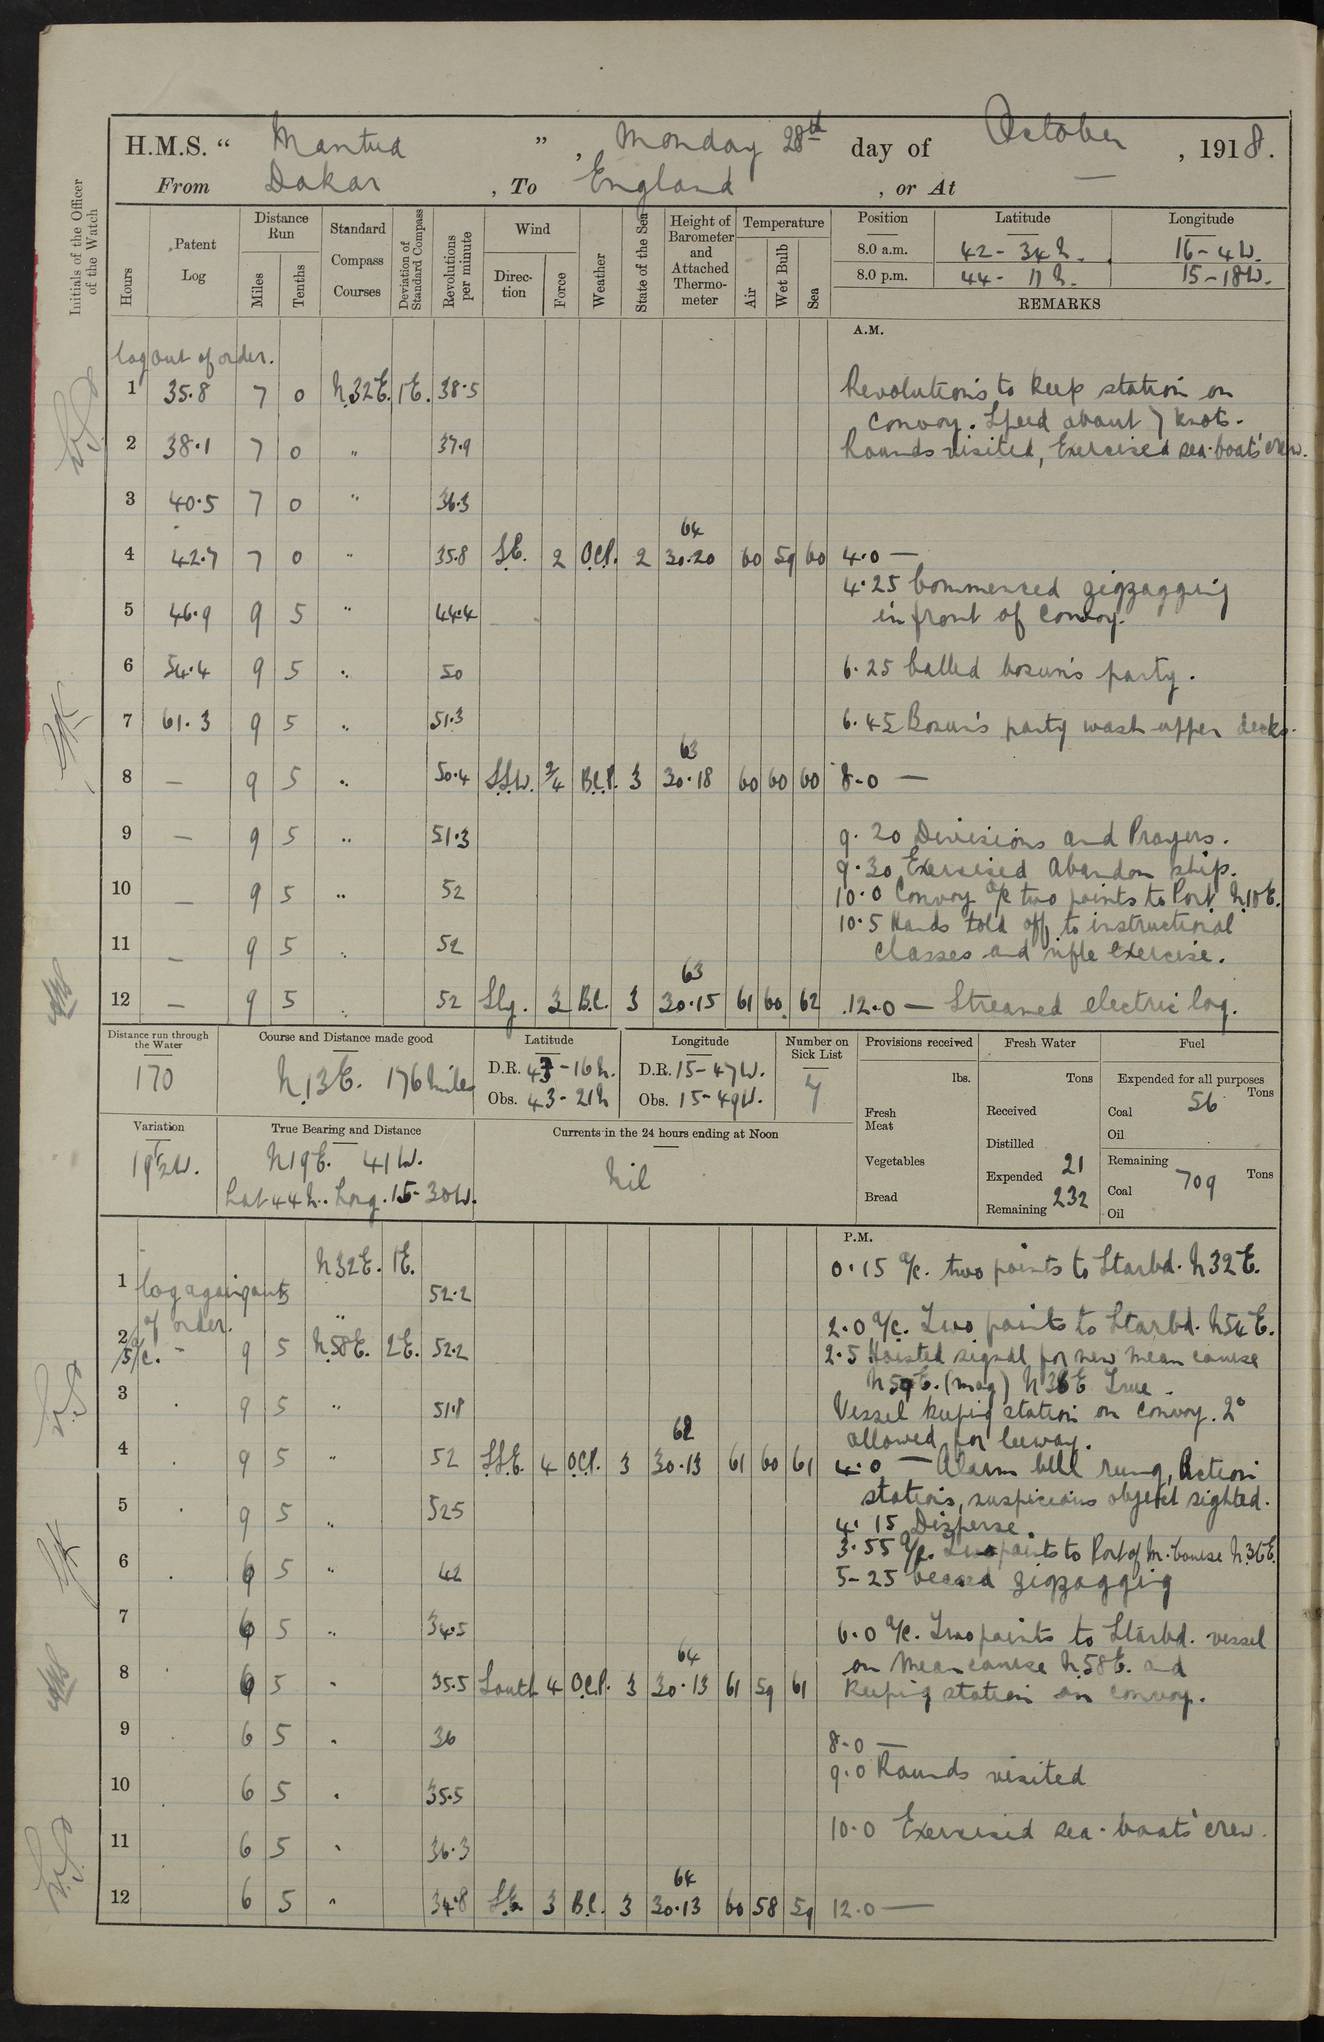 H.M.S. " Mantua " , Monday 28th day of October , 1918.
From Dakar , To England , or At —
Initials of the Officer of the Watch
Hours
Patent Log
Distance Run
Miles
Tenths
Standard Compass Courses
Deviation of Standard Compass
Revolutions per minute
Wind
Direction
Force
Weather
State of the Sea
Height of Barometer and Attached Thermometer
Temperature
Air
Wet Bulb
Sea
Position Latitude Longitude
8.0 a.m. 42 - 34 N. 16 - 4 W.
8.0 p.m. 44 - 11 N. 15 - 18 W.
REMARKS
A.M.
log out of order.
1 35.8 7 0 N.32E. 1E. 38.5 Revolutions to keep station on
convoy. Speed about 7 knots.
2 38.1 7 0 " 37.9 Rounds visited, Exercised sea-boats' crew.
3 40.5 7 0 " 36.3
64
4 42.7 7 0 " 35.8 S.E. 2 O.C.P. 2 30.20 60 59 60 4.0 —
4.25 Commenced zigzagging
5 46.9 9 5 " 44.4 in front of convoy.
6 54.4 9 5 " 50 6.25 Called bosun's party.
7 61.3 9 5 " 51.3 6.45 Bosun's party wash upper decks.
63
8 — 9 5 " 50.4 S.S.W. 3/4 B.C.P. 3 30.18 60 60 60 8.0 —
9 — 9 5 " 51.3 9.20 Divisions and Prayers.
9.30 Exercised Abandon ship.
10 — 9 5 " 52 10.0 Convoy a/c two points to Port N.10E.
10.5 Hands told off to instructional
11 — 9 5 " 52 classes and rifle exercise.
63
12 — 9 5 " 52 Sly. 3 B.C. 3 30.15 61 60 62 12.0 — Streamed electric log.
Distance run through the Water
170
Course and Distance made good
N.13E. 176 miles
Latitude
D.R. 43 - 16 N.
Obs. 43 - 21 N
Longitude
D.R. 15 - 47 W.
Obs. 15 - 49 W.
Number on Sick List
7
Provisions received
lbs.
Fresh Meat
Vegetables
Bread
Fresh Water
Tons
Received
Distilled
Expended 21
Remaining 232
Fuel
Expended for all purposes
Tons
Coal 56
Oil
Remaining
Coal 709 Tons
Oil
Variation
19½W.
True Bearing and Distance
N19E. 41
Lat 44 N. Long. 15 - 30 W.
Currents in the 24 hours ending at Noon
Nil
P.M.
N32E. 1E. 0.15 a/c. two points to Starbd. N32E.
1 log again out 5 52.2
of order. " 2.0 a/c. Two points to Starbd. N54E.
2 9 5 N.58E. 2E. 52.2 2.5 Hoisted signal for new mean course
/5 a/c. (mag) True.
3 9 5 " 51.8 Vessel keeping station on convoy. 2°
62 allowed for leeway.
4 9 5 " 52 S.S.E. 4 O.C.P. 3 30.13 61 60 61 4.0 — Alarm bell rung, Action
stations, suspicious object sighted.
5 9 5 " 52.5 4.15 Disperse.
3.55 a/c. Two points to Port of M. course N.36E.
6 6 5 " 42 5-25 ceased zigzagging
7 6 5 " 34.5 6.0 a/c. Two points to Starbd. vessel
64 on mean course N.58E. and
8 6 5 " 35.5 South 4 O.C.P. 3 30.13 61 59 61 keeping station on convoy.
9 6 5 " 36 8.0 —
9.0 Rounds visited
10 6 5 " 35.5
11 6 5 " 36.3 10.0 Exercised sea-boats' crew.
64
12 6 5 " 34.8 S.E. 3 B.C. 3 30.13 60 58 59 12.0 —